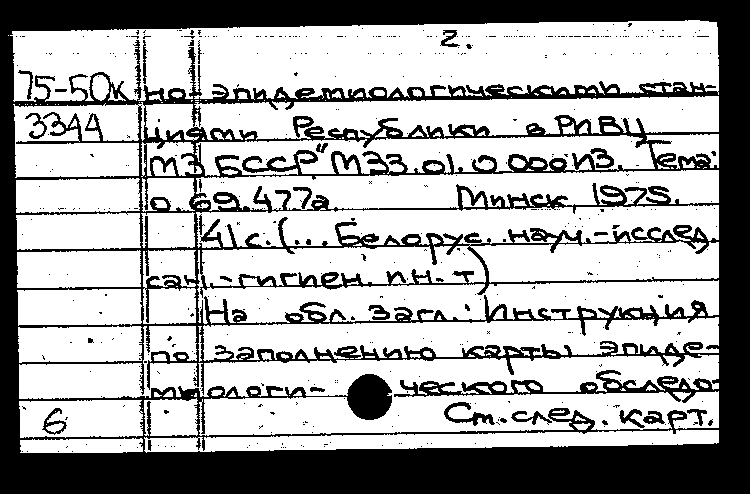 2.
75-50к но-эпидемиологическими стан-
3344 циями Республики в РИВЦ
МЗ БССР" МЭЗ.01.0000ИЗ. Тема:
о.69.477а. Минск, 1975.
41с. (... Белорус. науч.-исслед.
сан.-гигиен. ин-т)
На обл. загл.: Инструкция
по заполнению карты эпиде-
миологи- ческого обследо-
6 См. след. карт.